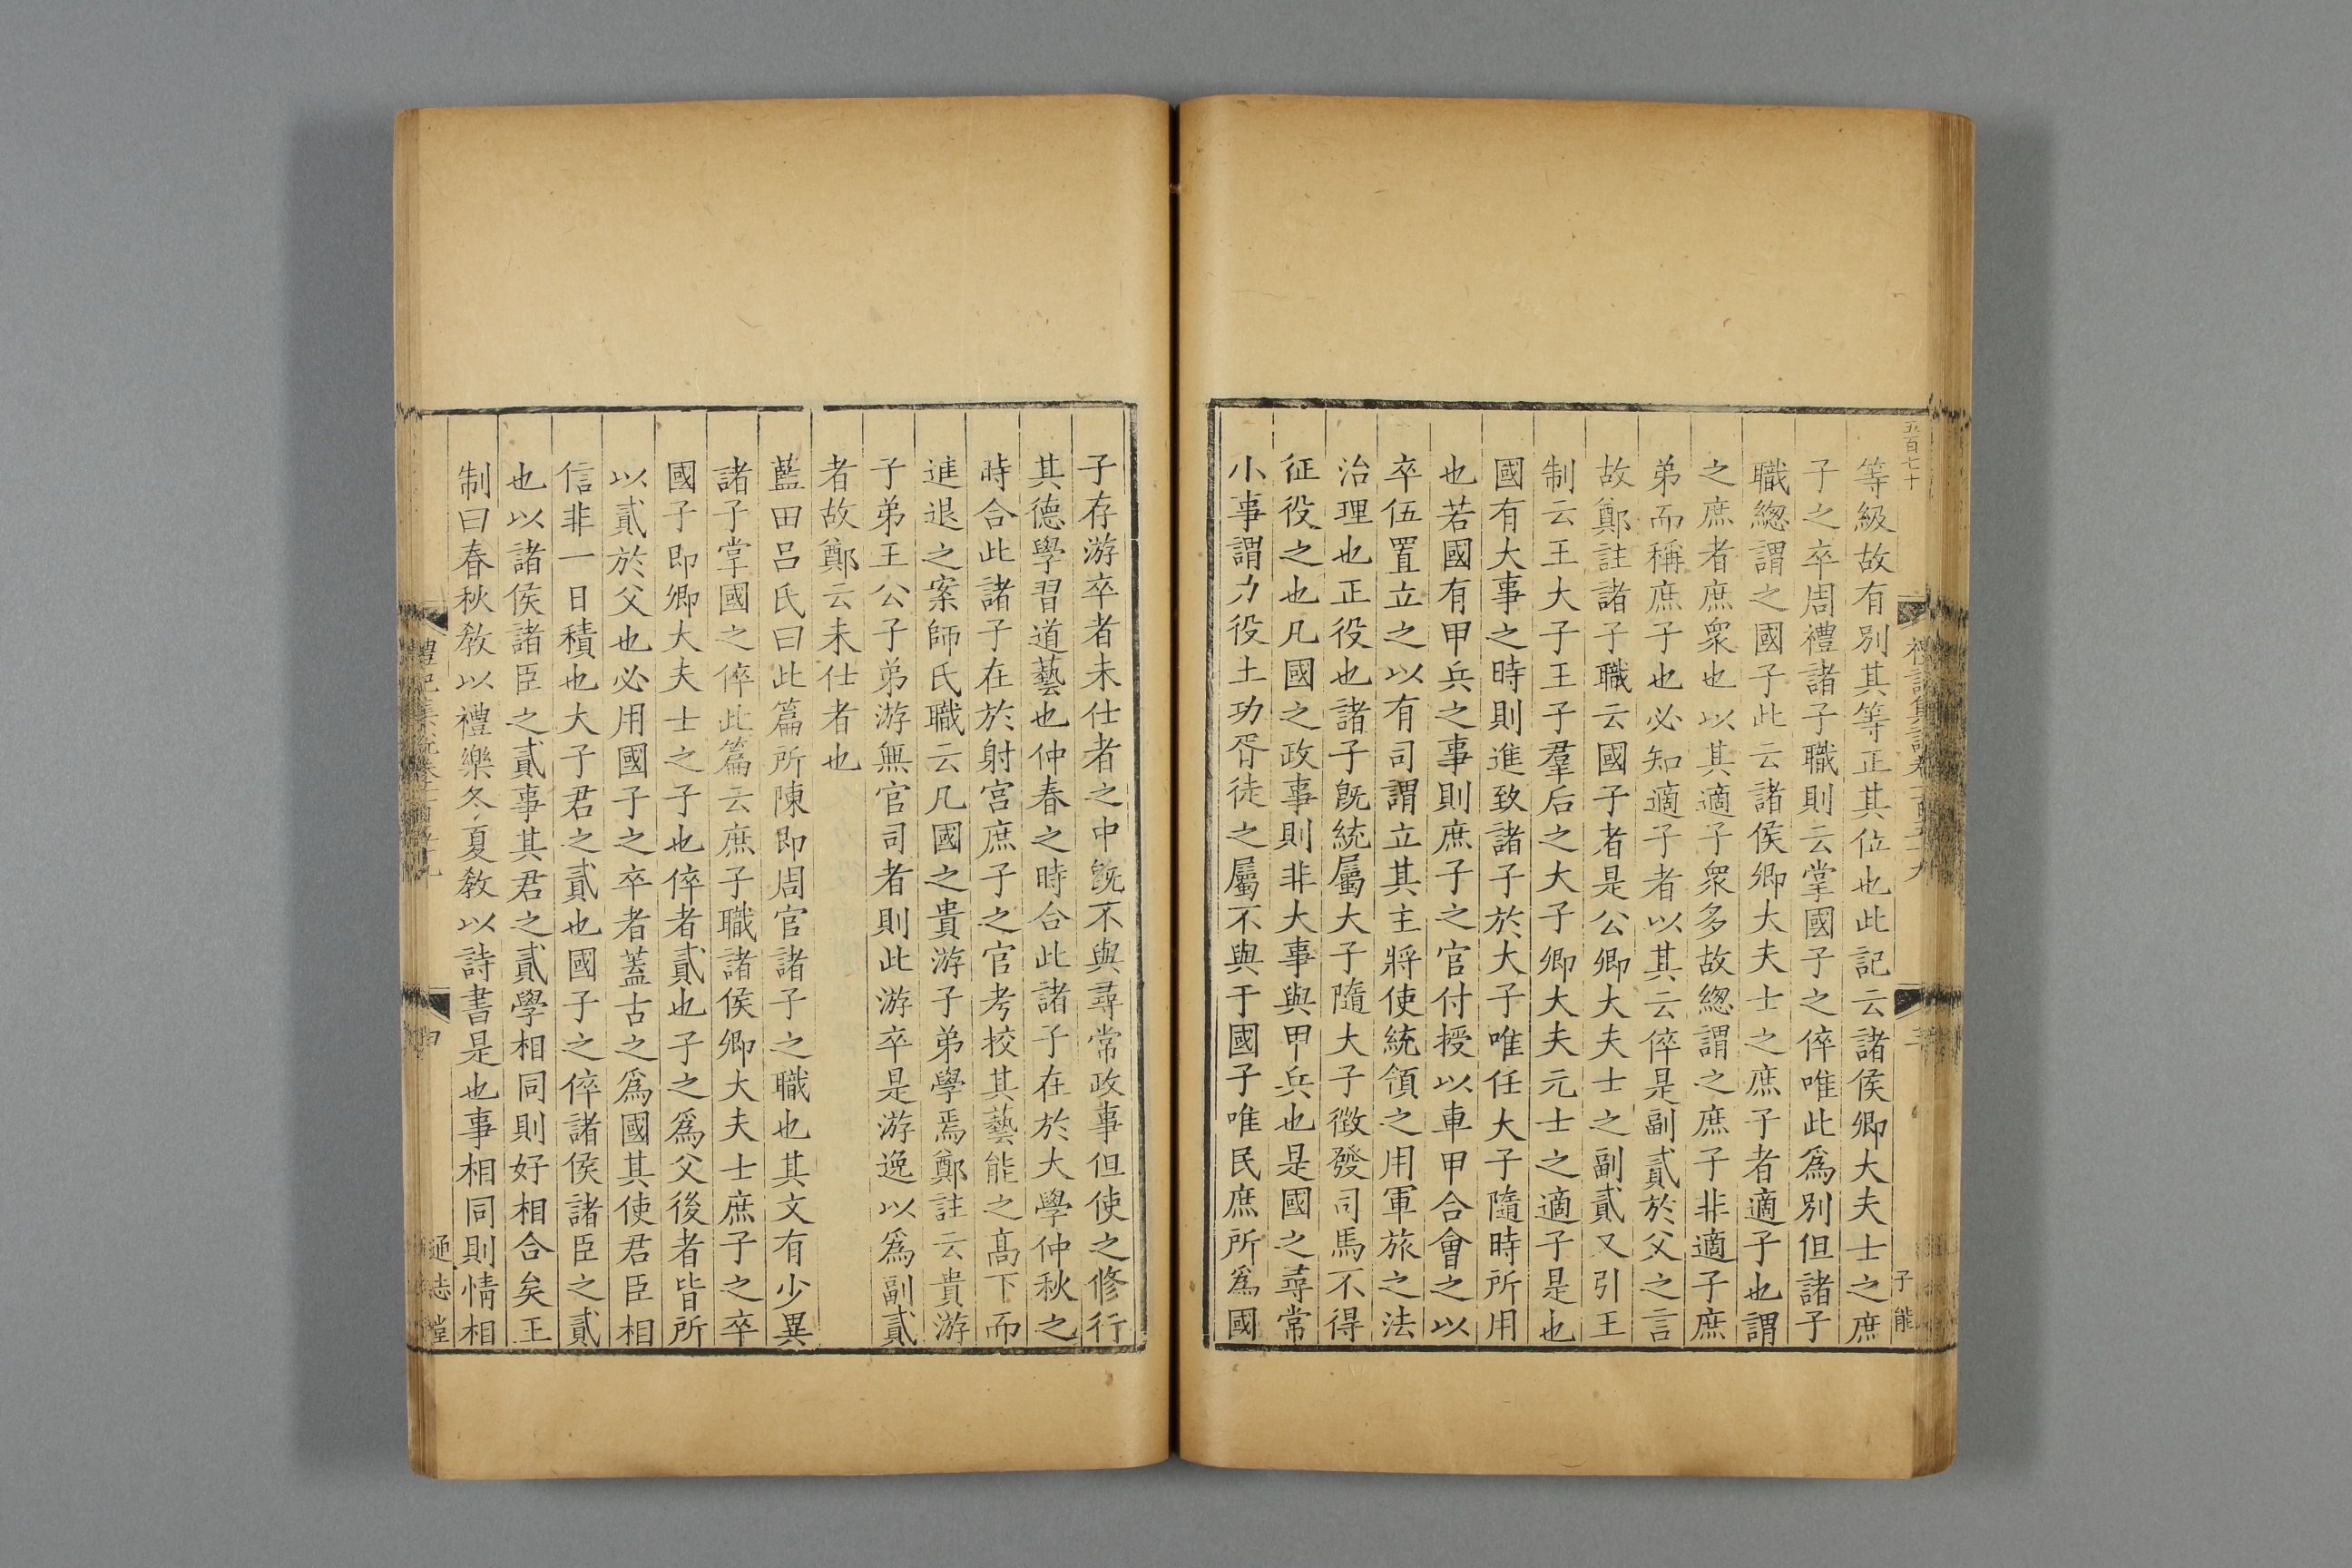 五百七十
子能
等級故有別其等正其位也此記云諸侯卿大夫士之庶
子之卒周禮諸子職則云掌國子之倅唯此爲別但諸子
職緫謂之國子此云諸侯卿大夫士之庶子者適子也謂
之庶者庶衆也以其適子衆多故緫謂之庶子非適子庶
弟而稱庶子也必知適子者以其云倅是副貳於父之言
故鄭註諸子職云國子者是公卿大夫士之副貳又引王
制云王大子王子羣后之大子卿大夫元士之適子是也
國有大事之時則進致諸子於大子唯任大子隨時所用
也若國有甲兵之事則庶子之官付授以車甲合會之以
卒伍置立之以有司謂立其主將使統領之用軍旅之法
治理也正役也諸子旣統屬大子隨大子徵發司馬不得
征役之也凡國之政事則非大事與甲兵也是國之尋常
小事謂力役土功胥徒之屬不與于國子唯民庶所爲國
子存游卒者未仕者之中旣不與尋常政事但使之修行
其德學習道藝也仲春之時合此諸子在於大學仲秋之
時合此諸子在於射宮庶子之官考挍其藝能之髙下而
進退之案師氏職云凡國之貴游子弟學焉鄭註云貴游
子弟王公子弟游無官司者則此游卒是游逸以爲副貳
者故鄭云未仕者也
藍田呂氏曰此篇所陳即周官諸子之職也其文有少異
諸子掌國之倅此篇云庶子職諸侯卿大夫士庶子之卒
國子即卿大夫士之子也倅者貳也子之爲父後者皆所
以貳於父也必用國子之卒者蓋古之爲國其使君臣相
信非一日積也大子君之貳也國子之倅諸侯諸臣之貳
也以諸侯諸臣之貳事其君之貳學相同則好相合矣王
制曰春秋敎以禮樂冬夏敎以詩書是也事相同則情相
通志堂